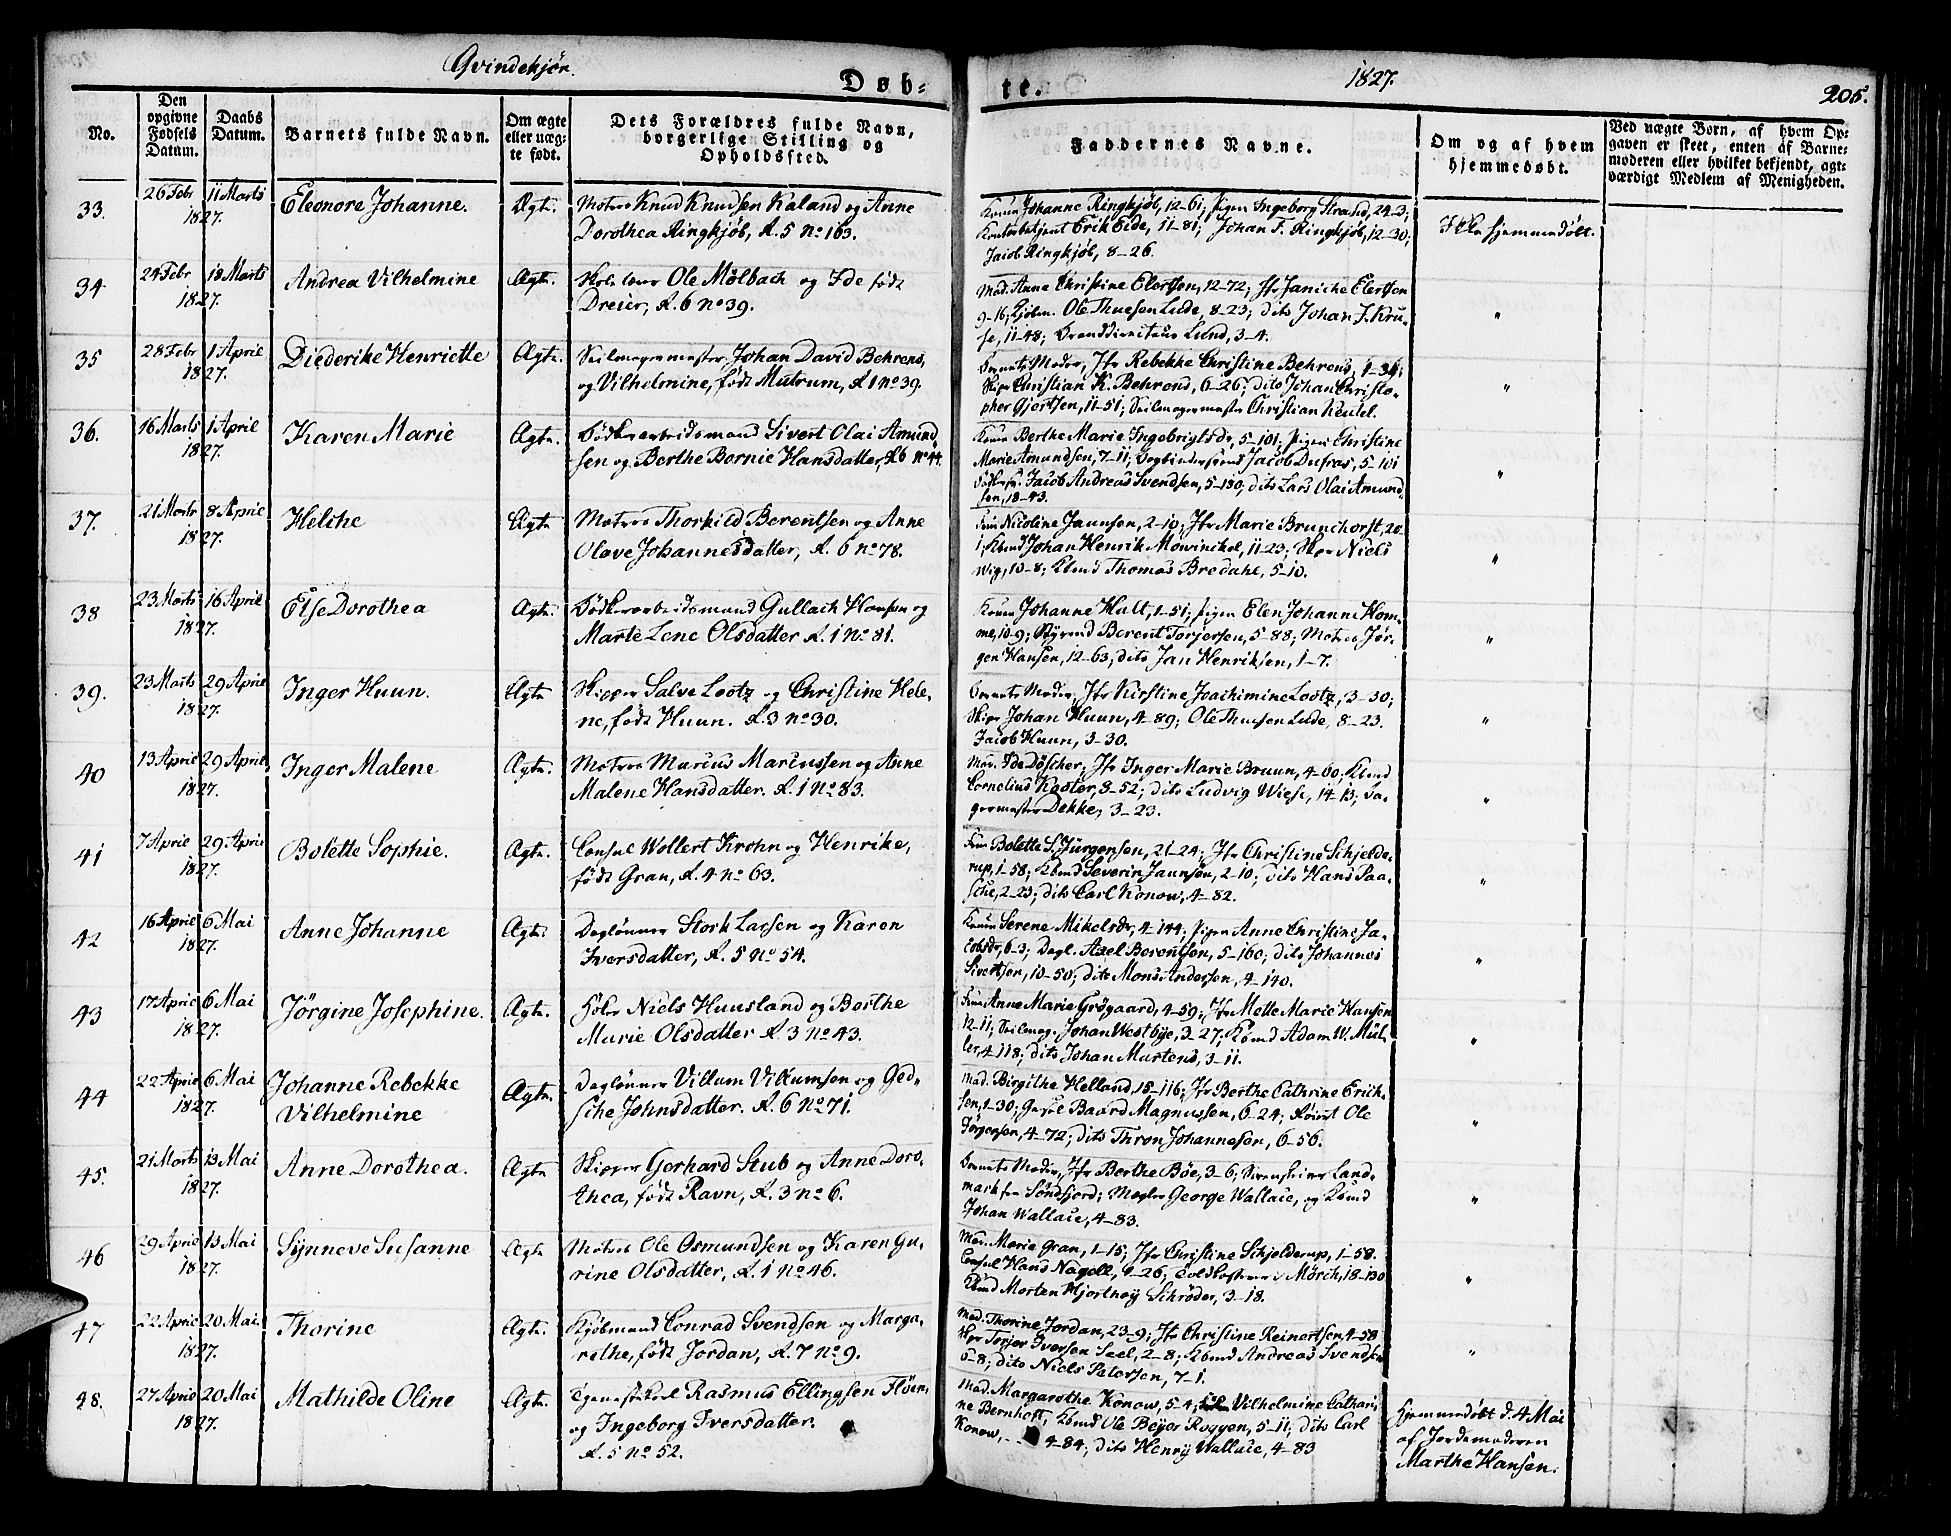 Qvindekjön.
Døb-
te.
1827.
205.
No.
Den opgivne Fødsels Datum.
Daabs Datum.
Barnets fulde Navn.
Om ægte eller uægte født.
Dets Forældres fulde Navn, borgerlige Stilling og Opholdssted.
Faddernes Navne.
Om og af hvem hjemmedøbt.
Ved uægte Børn, af hvem Opgaven er skeet, enten af Barnemoderen eller hvilket bekjendt, agtværdigt Medlem af Menigheden.
33.
26 Febr 1827.
11 Marts
Eleonore Johanne.
Ægte.
Matros Knud Knudsen Kaland og Anne
Dorothea Ringkjøb, R. 5 No 163.
Konen Johanne Ringkjøb, 12-61; Pigen Ingeborg Strand, 24-3;
Erik Eide, 11-81; Johan F. Ringkjøb, 12-30;
Jacob Ringkjøb, 8-26.
Ikke hjemmedøbt.
34
24 Febr 1827.
18 Marts
Andrea Vilhelmine
Ægte.
Ole Mølbach og Ide født
Dreier, R. 6 No 39.
Mad. Anne Christine Elertsen, 12-72; Jfr Janiche Elertsen
9-16; Kjøbm. Ole Thuesen Lude, 8-23; dito Johan F. Kru-
se, 11-48; Branddirecteur Lund, 3-4.
"
35
28 Febr 1827.
1 April
Diederike Henriette
Ægte.
Seilmagermester Johan David Behrens,
og Vilhelmine, født Mutrum, R. 1 No 39.
Barnets Moder, Jfr Rebekke Christine Behrens, 1-36;
Skipr Christian K. Behrens, 6-26; dito Johan Christo-
pher Gjertsen, 11-51; Seilmagermester Christian Keutel.
"
36.
16 Marts 1827.
1 April
Karen Marie
Ægte.
Bødkerarbeidsmand Sivert Olai Amund-
sen og Berthe Bornie Hansdatter, R. 6 No 44.
Konen Berthe Marie Ingebrigtsdr, 5-101; Pigen Christine
Marie Amundsen, 7-11; Jacob Dufras, 5-101
Jacob Andreas Svendsen, 5-130; dito Lars Olai Amund-
sen, 18-43.
"
37.
21 Marts 1827.
8 April
Helche
Ægte.
Matros Thorkild Berentsen og Anne
Olave Johannesdatter, R. 6 No 78.
Fru Nicoline Jannsen, 2-10; Jfr Marie Brunchorst, 20-
1; Kbmd Johan Henrik Mowinckel, 11-23; Skpr Niels
Wig, 10-8; Kbmd Thomas Bredahl, 5-10.
"
38
23 Marts 1827.
16 April
Else Dorothea
Ægte.
Bødkerarbeidsmand Gullach Hansen og
Marte Lene Olsdatter R. 1 No 81.
Konen Johanne Hult, 1-51; Pigen Elen Johanne Hom-
me, 10-9; Styrmd Berent Torjersen, 5-88; Matros Jør-
gen Hansen, 12-63; dito Jan Henriksen, 1-7.
"
39.
23 Marts 1827.
29 April
Inger Huun.
Ægte
Skipper Salve Lootz og Christine Hele-
ne, født Huun. R. 3 No 30.
Barnets Moder, Jfr Kirstine Joachimine Lootz, 3-30;
Skipr Johan Huun, 4-89; Ole Thuesen Lude, 8-23.
Jacob Huun, 3-30.
"
40
13 April 1827.
29 April
Inger Malene
Ægte.
Matros Marcus Marcussen og Anne
Malene Hansdatter. R. 1 No 83.
Mad. Ide Döscher, Jfr Inger Marie Bruun, 4-60; Kbmd
Cornelius Koster, 3-52; dito Ludvig Wiese, 14-13; Ba-
germester Dekke, 3-23.
"
41
7 April 1827.
29 April
Bolette Sophie.
Ægte.
Consul Wollert Krohn og Henrike,
født Gran, R. 4 No 63.
Fru Bolette S. Jürgensen, 21-24; Jfr Christine Schjelde-
rup, 1-58; Kbmd Severin Jannsen, 2-10; dito Hans Paa-
sche, 2-23; dito Carl Konow, 4-82.
"
42
16 April 1827.
6 Mai
Anne Johanne
Ægte.
Daglønner Stork Larsen og Karen
Iversdatter, R. 5 No 54.
Konen Serene Mikelsdr, 4-144; Pigen Anne Christine Ja-
cobsdr, 6-3; Dagl. Axel Berentsen, 5-160; dito Johannes
Sivertsen, 10-50; dito Mons Andersen, 4-140.
"
43
17 April 1827.
6 Mai
Jörgine Josephine.
Ægte.
Niels Huusland og Berthe
Marie Olsdatter R. 3 No 43.
Fru Anne Marie Grögaard, 4-59; Jfr Mette Marie Hansen
12-11; Seilmag. Johan Westbye, 3-27; Kbmd Adam W. Mül-
ler, 4-118; dito Johan Martens, 3-11.
"
44
22 April 1827.
6 Mai
Johanne Rebekke
Vilhelmine
Ægte.
Daglønner Villum Villumsen og Ged-
sche Johnsdatter. R. 6 No 71.
Mad. Birgithe Helland, 15-116; Jfr Berthe Cathrine Erik-
sen, 1-30; Baard Magnussen, 6-24; Ole
Jörgensen, 4-72; dito Thron Johannesen, 6-56.
"
45.
21 Marts 1827.
13 Mai
Anne Dorothea.
Ægte
Skipper Gerhard Stub og Anne Doro-
thea, født Ravn, R. 3 No 6.
Barnets Moder, Jfr Berthe Böe, 3-6; Land-
mark fra Søndfjord; Mægler George Wallace, og Kbmd
Johan Wallace, 4-83.
"
46
29 April 1827.
13 Mai
Synneve Susanne
Ægte
Matros Ole Osmundsen og Karen Gu-
rine Olsdatter, R. 1 No 46.
Mad. Marie Gran, 1-15; Jfr Christine Schjelderup, 1-58.
Consul Hans Nagell, 9-26; Toldkasserer Mörch, 18-130
Kbmd Morten Hjorthøy Schrøder, 3-18.
"
47
22 April 1827.
20 Mai.
Thorine
Ægte.
Kjøbmand Conrad Svendsen og Marga-
rethe, født Jordan, R. 7 No 9.
Mad. Thorine Jordan, 23-9; Jfr Christine Reinertsen, 4-58
Skpr Torjer Iversen Sael, 2-8; Kbmd Andreas Svendsen
6-8; dito Niels Petersen, 7-1.
"
48.
27 April 1827.
20 Mai
Mathilde Oline
Ægte.
Rasmus Ellingsen Flöen,
og Ingeborg Iversdatter.
R. 5 No 52.
Mad. Margarethe Konow, 5-4; Vilhelmine Cathari-
ne Bernhoft, Kbmd Ole Beyer Roggen, 5-11; dito Carl
Konow, 4-84; dito Henry Wallace, 4-83
Hjemmedøbt d. 4 Mai
af Jordemoderen
Marthe Hansen.